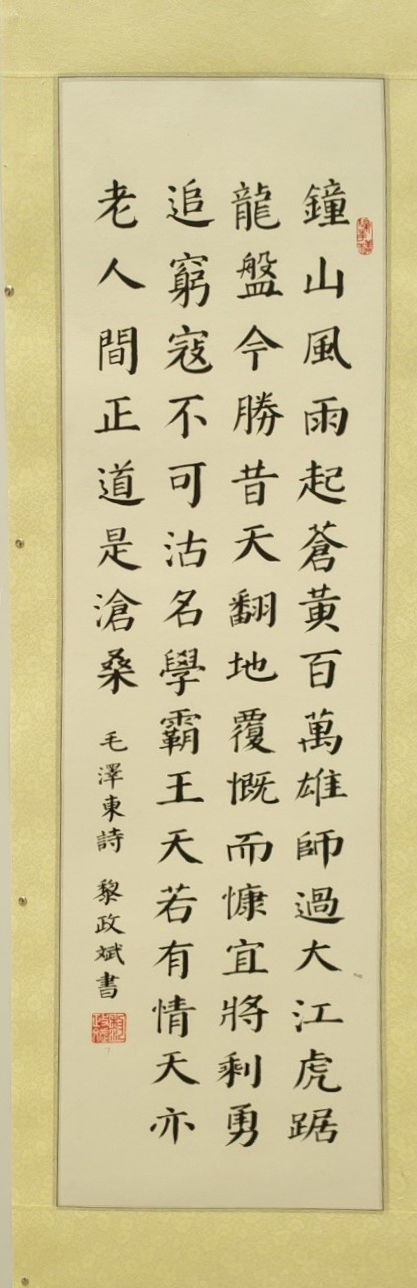 鐘山風雨起蒼黃百萬雄師過大江虎踞
龍盤今勝昔天翻地覆慨而慷宜將剩勇
追窮寇不可沽名學霸王天若有情天亦
老人間正道是滄桑
毛澤東詩 黎政斌書